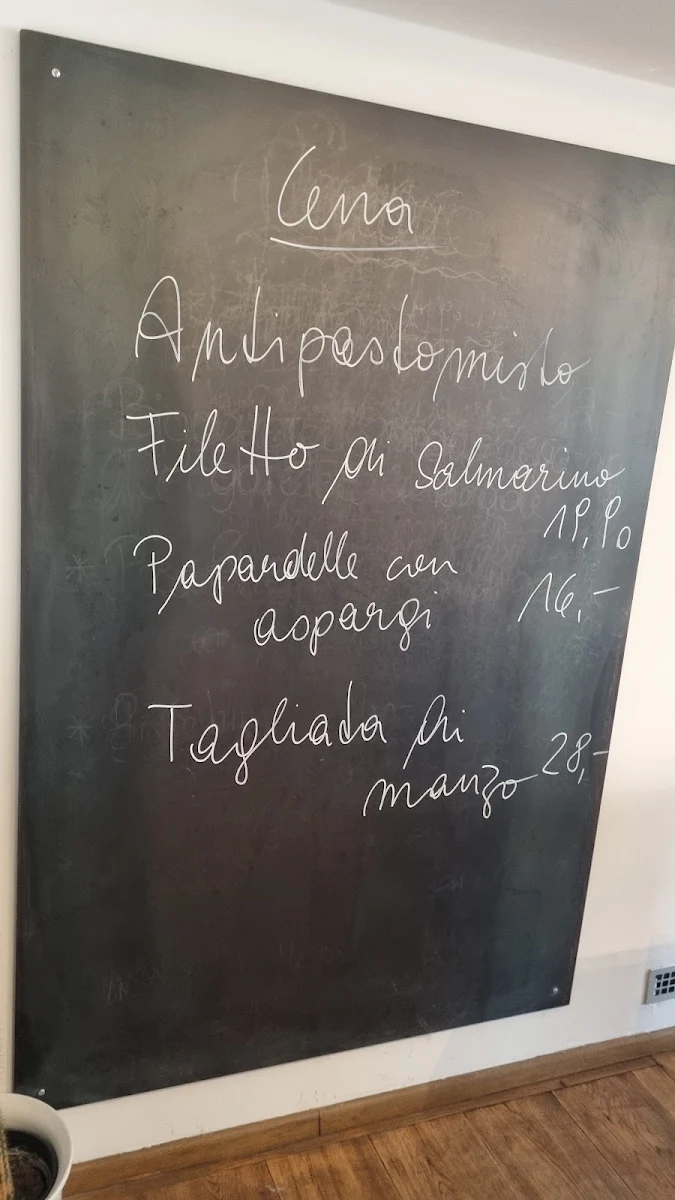 Cena
Antipasto misto
Filetto di Salmarino
19,90
Papardelle con
aspargi 16,-
Tagliata di
manzo 28,-